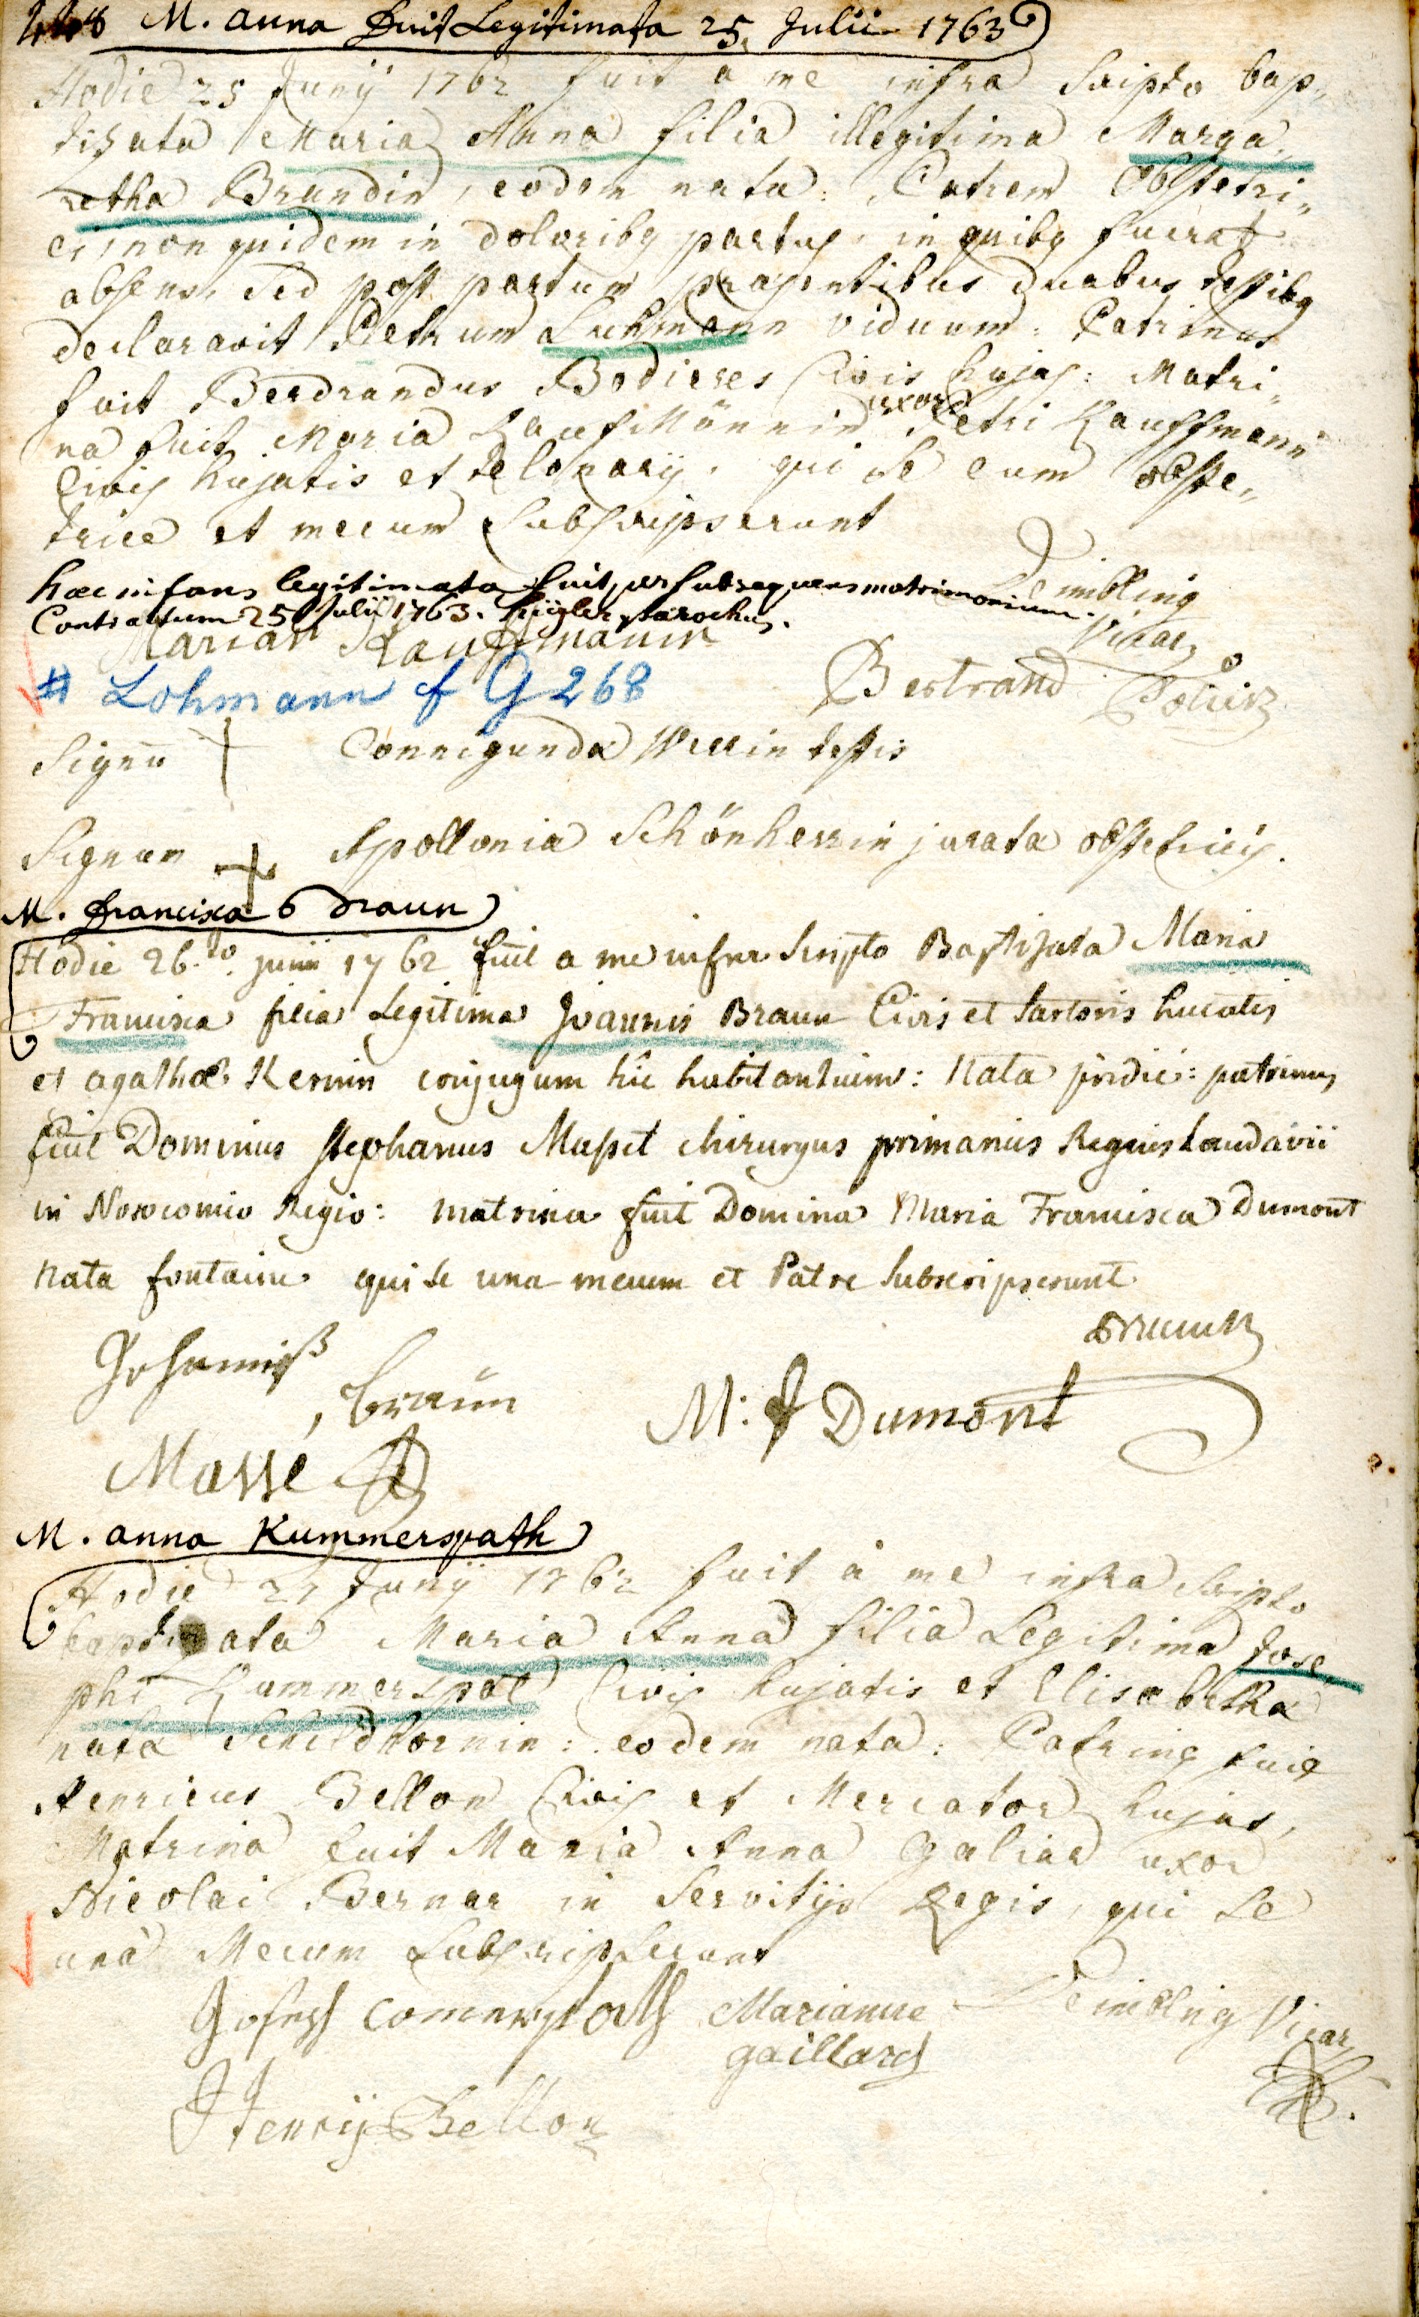 448 M. anna fuit Legitimata 25 Julii 1763
Hodie 25 Junij 1762 fuit a me infra Scripto bap„
tizata Maria Anna filia illegitima Marga„
retha Brundin, eodem nata: Patrem Obstetri„
ci, non quidem in doloribq partus, in quibq fuerat
absens, Sed post partum praesentibus duabus testibq
declaravit Petrum Luhmann viduum: Patrinus
fuit Berdrandus Bodieres Civis hujas: Matri„
na fuit Maria Kaufmännin uxor Petri Kauffmann
Civis hujatis et telonarij. qui se cum obste„
trice et mecum Subscripserunt
haec infans legitimata fuit per subsequens matrimonium
Contractum 25 Julii 1763. parochus.
Deimbling
Vicar
Marian Kauffmanin
Bertrand
# Lohmann f G 268
Signū Connigunda testis
Signum Apollonia Schönherrin jurata obstetricis.
M. francisca Braun
Hodie 26.to junii 1762 fuit a me infra Scripto Baptizata Maria
Francisca filia Legitima Joannis Braun Civis et Sartoris hujatis
et agathae Kernin conjugum hic habitantium: Nata pridie: patrinus
fuit Dominus Stephanus Masset chirurgus primarius Regius Landavii
in Nosocomio Regio: matrina fuit Domina Maria Francisca Dumont
nata fontaine qui se una mecum et Patre Subscripserunt
Johannes
Braun
M: f Dumont
Massé
M. anna Kummerspath
Hodie 27 Junij 1762 fuit à me infra Scripto
baptizata Maria Anna filia Legitima Jose
phi Kummerspat Civis hujatis et Elisabetha
nata Schildknornin: eodem nata: Patrinq fuit
Henricus Bellon Civis et Mercator hujas,
Matrina fuit Maria Anna Galiar uxor
Nicolai Bernar in Servitijs Regis, qui Se
unà Mecum Subscripserunt
Joseph Comerspath Marianne Deimbling Vicar
gaillard
Henrij Bellon